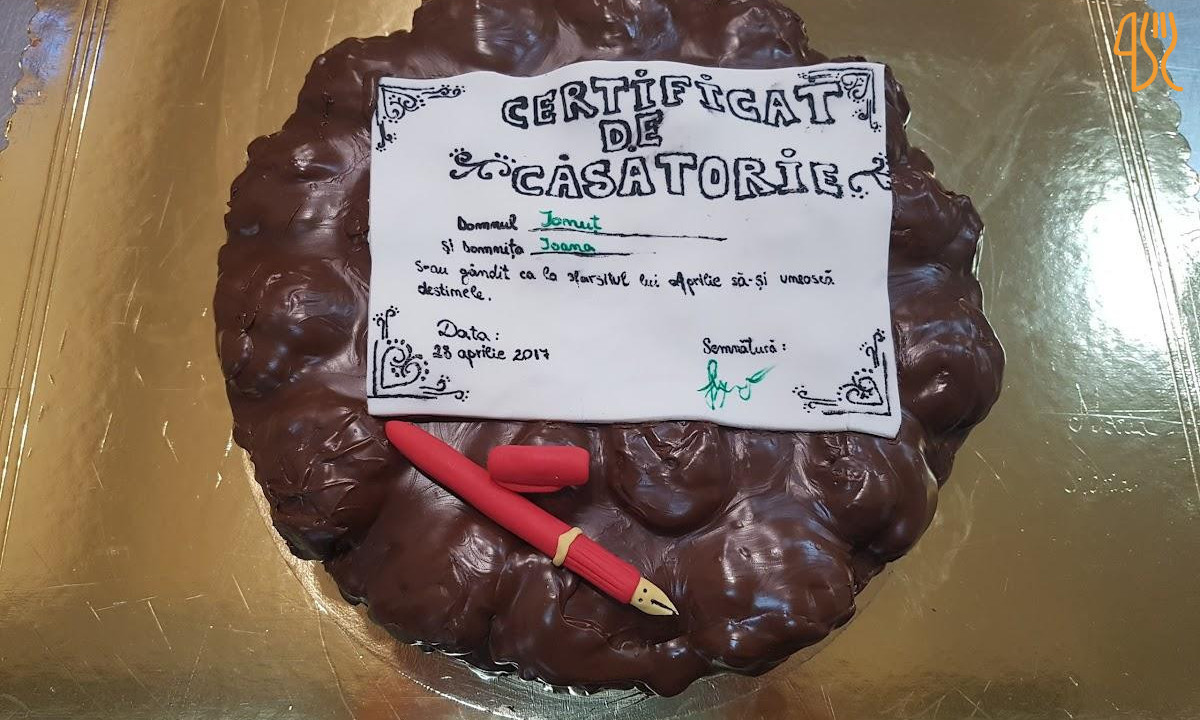 CERTIFICAT
DE
CĂSATORIE
Domnul Ionuț
Și Domnița Ioana
S-au gândit ca la sfarsitul lui Aprilie să-și unească
destinele.
Data: Semnătură:
28 aprilie 2017